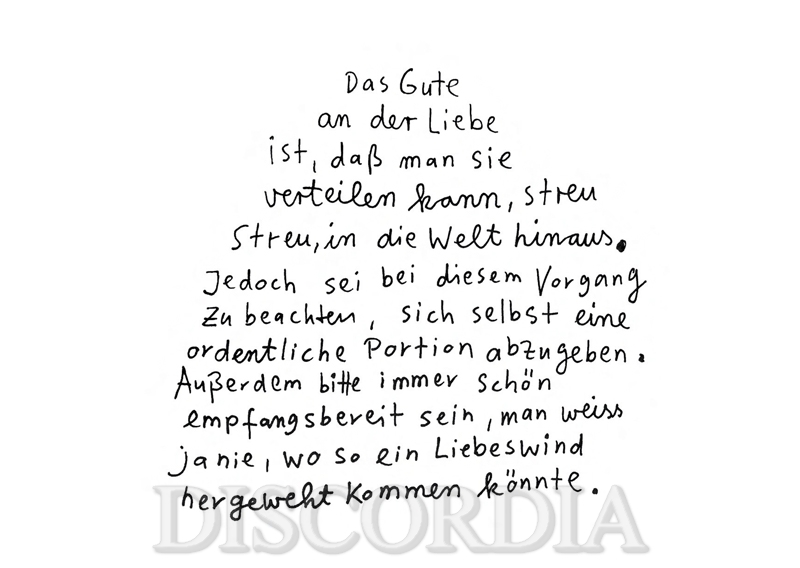 Das Gute
an der Liebe
ist, daß man sie
verteilen kann, streu
streu, in die Welt hinaus.
Jedoch sei bei diesem Vorgang
zu beachten, sich selbst eine
ordentliche Portion abzugeben.
Außerdem bitte immer schön
empfangsbereit sein, man weiss
ja nie, wo so ein Liebeswind
hergeweht kommen könnte.
DISCORDIA